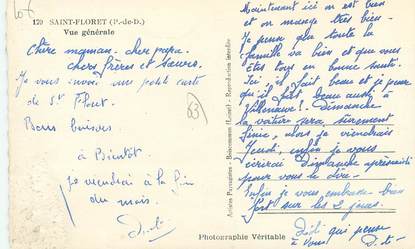 106
179 SAINT-FLORET (P.-de-D.)
Vue générale
Chère maman. cher papa.
chers frères et sœurs.
Je vous envoie une petite carte
de St Floret.
Bons baisers
à Bientôt
je viendrai à la fin
du mois.
D.d.
63
Artistes Parisiennes - Reproduction interdite
Maintenant ici on est bien
et on mange très bien.
Je pense que toute la
famille va bien et que vous
êtes tous en bonne santé.
Ici, il fait beau et je pense
qu'il fait beau aussi à
Dimanche
la voiture sera sûrement
finie, alors je viendrais
Jeudi, enfin je vous
écrirai Dimanche après midi
pour vous le dire.
Enfin je vous embrasse bien
fort sur les 2 joues.
Didi qui pense
à vous! D.d.
Photographie Véritable